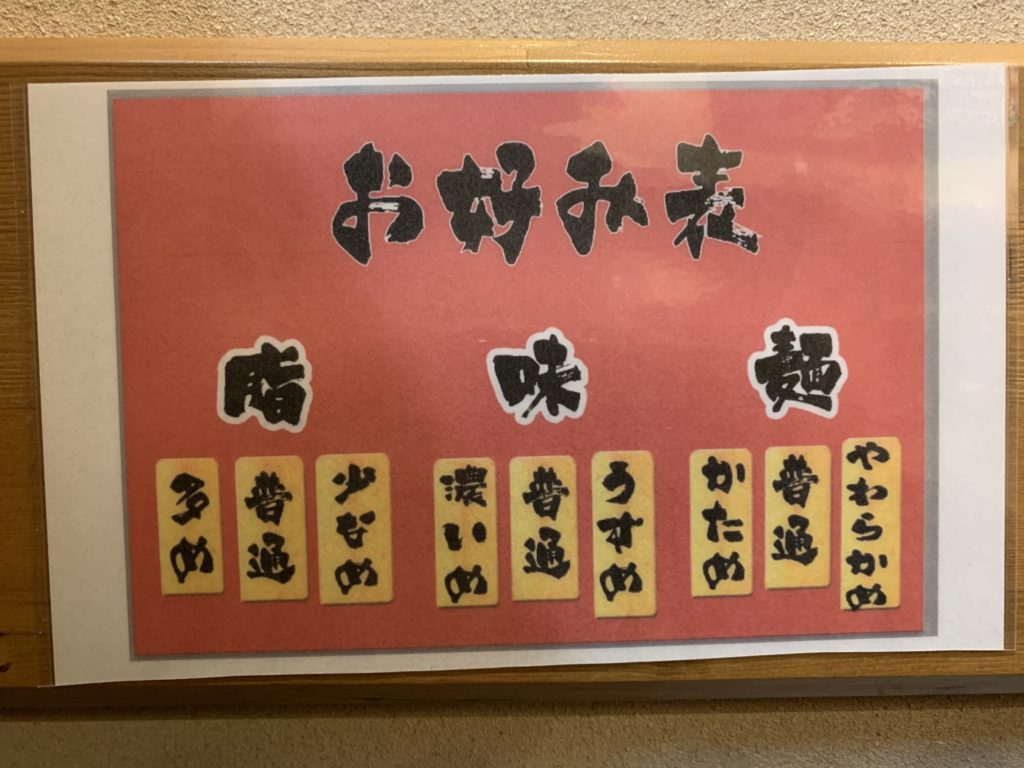 お好み表
麺
やわらかめ
普通
かため
味
うすめ
普通
濃いめ
脂
少なめ
普通
多め